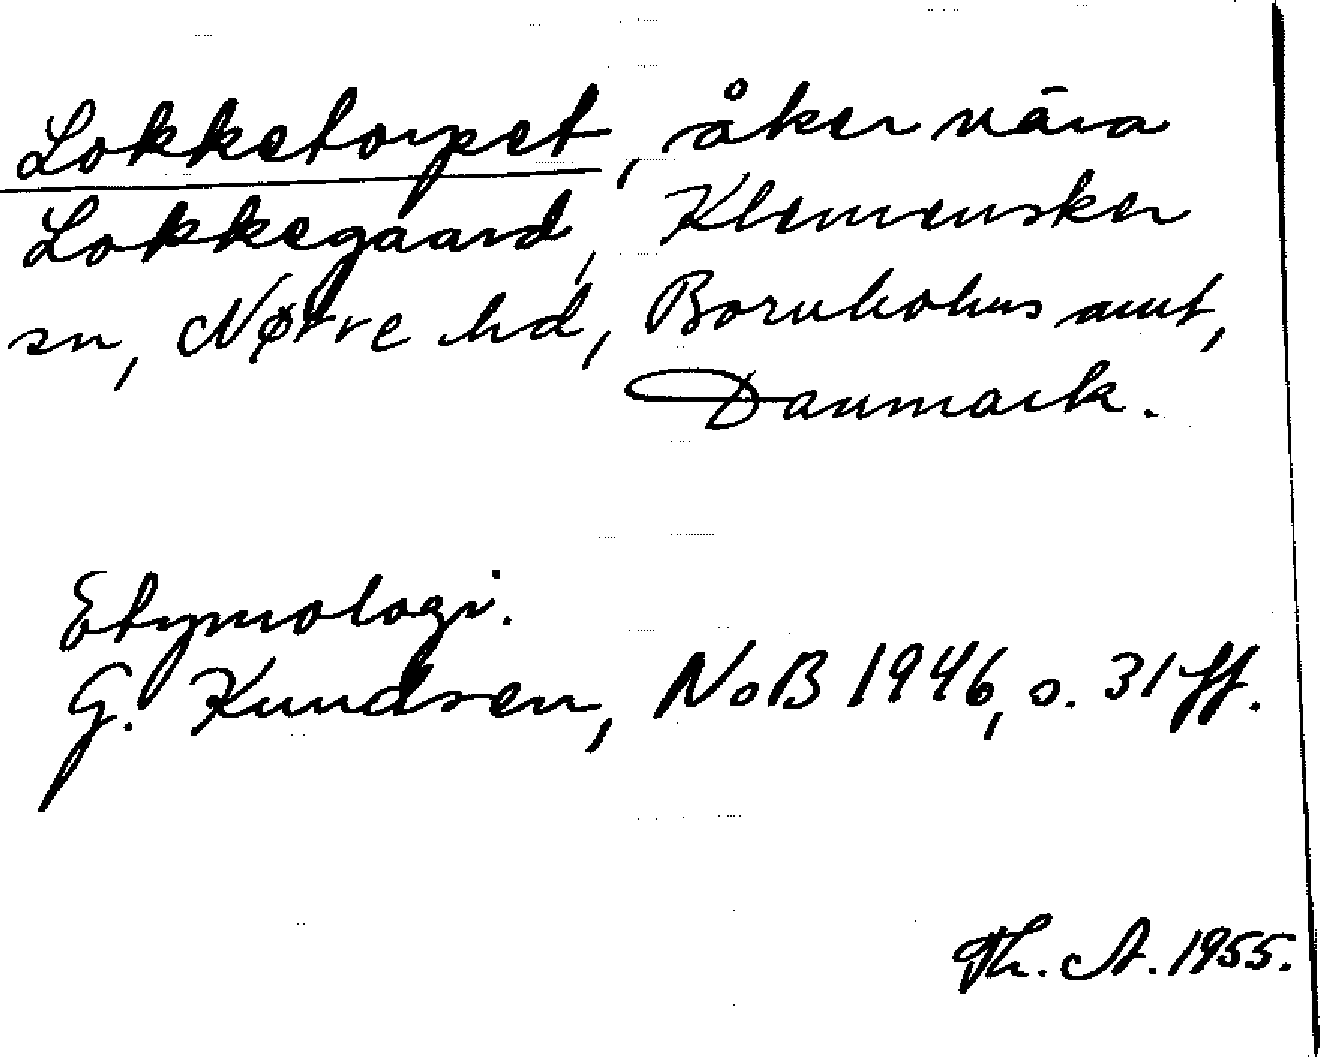 Lokketorpet, åker nära
Lokkegaard, Klemensker
sn, Nørre hd, Bornholms amt,
Danmark.
Etymologi.
G. Knudsen, NoB 1946, s. 31 ff.
Th. A. 1955.